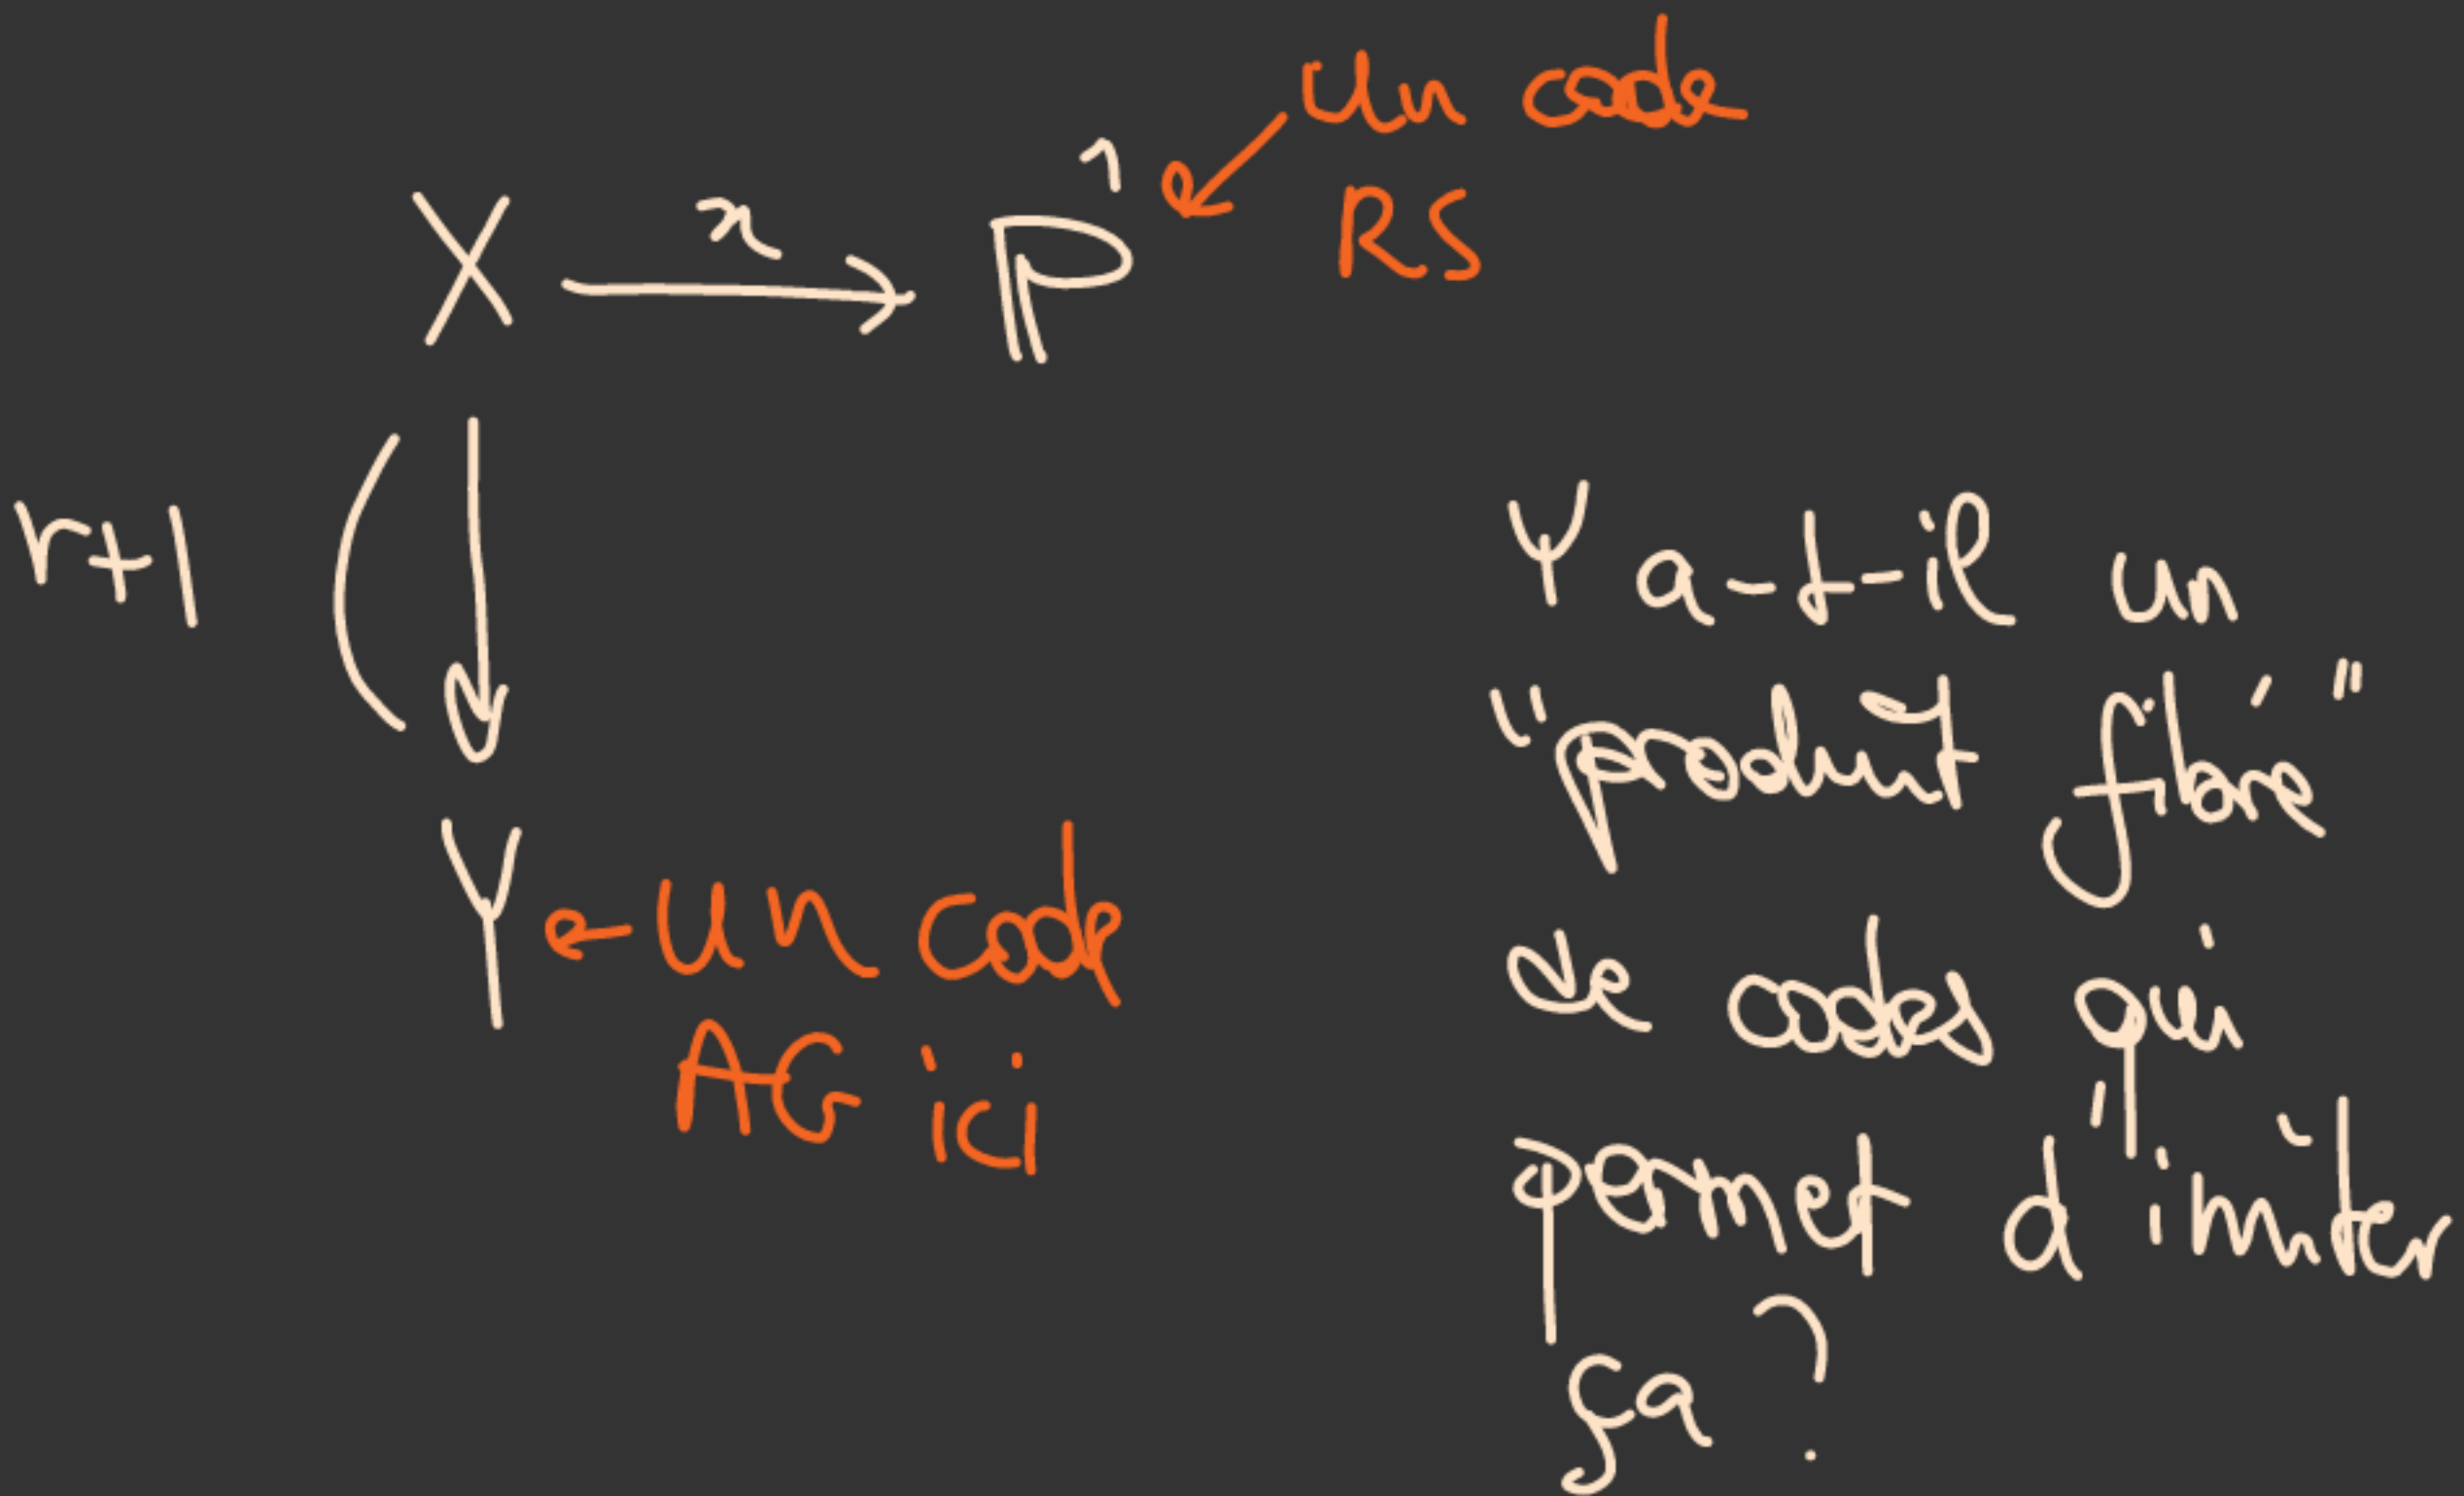 Un code
RS
X x P¹
r+1
Y ← un code
AG ici
Y a-t-il un
"produit fibré"
de codes qui
permet d'imiter
ça ?